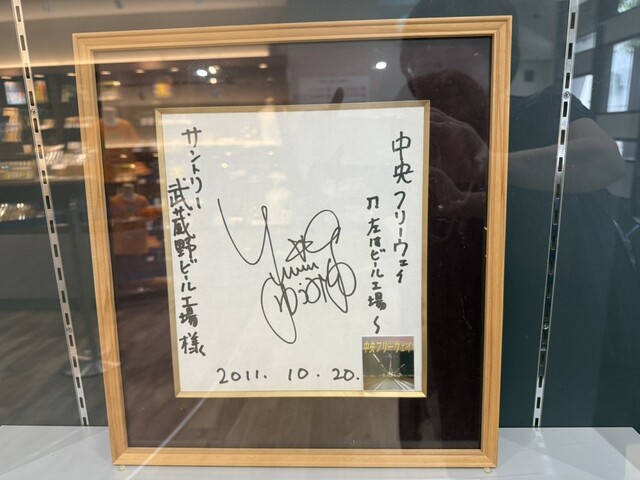 中央フリーウェイ
♫左はビール工場〜
サントリー
武蔵野ビール工場 様
2011. 10. 20.
中央フリーウェイ